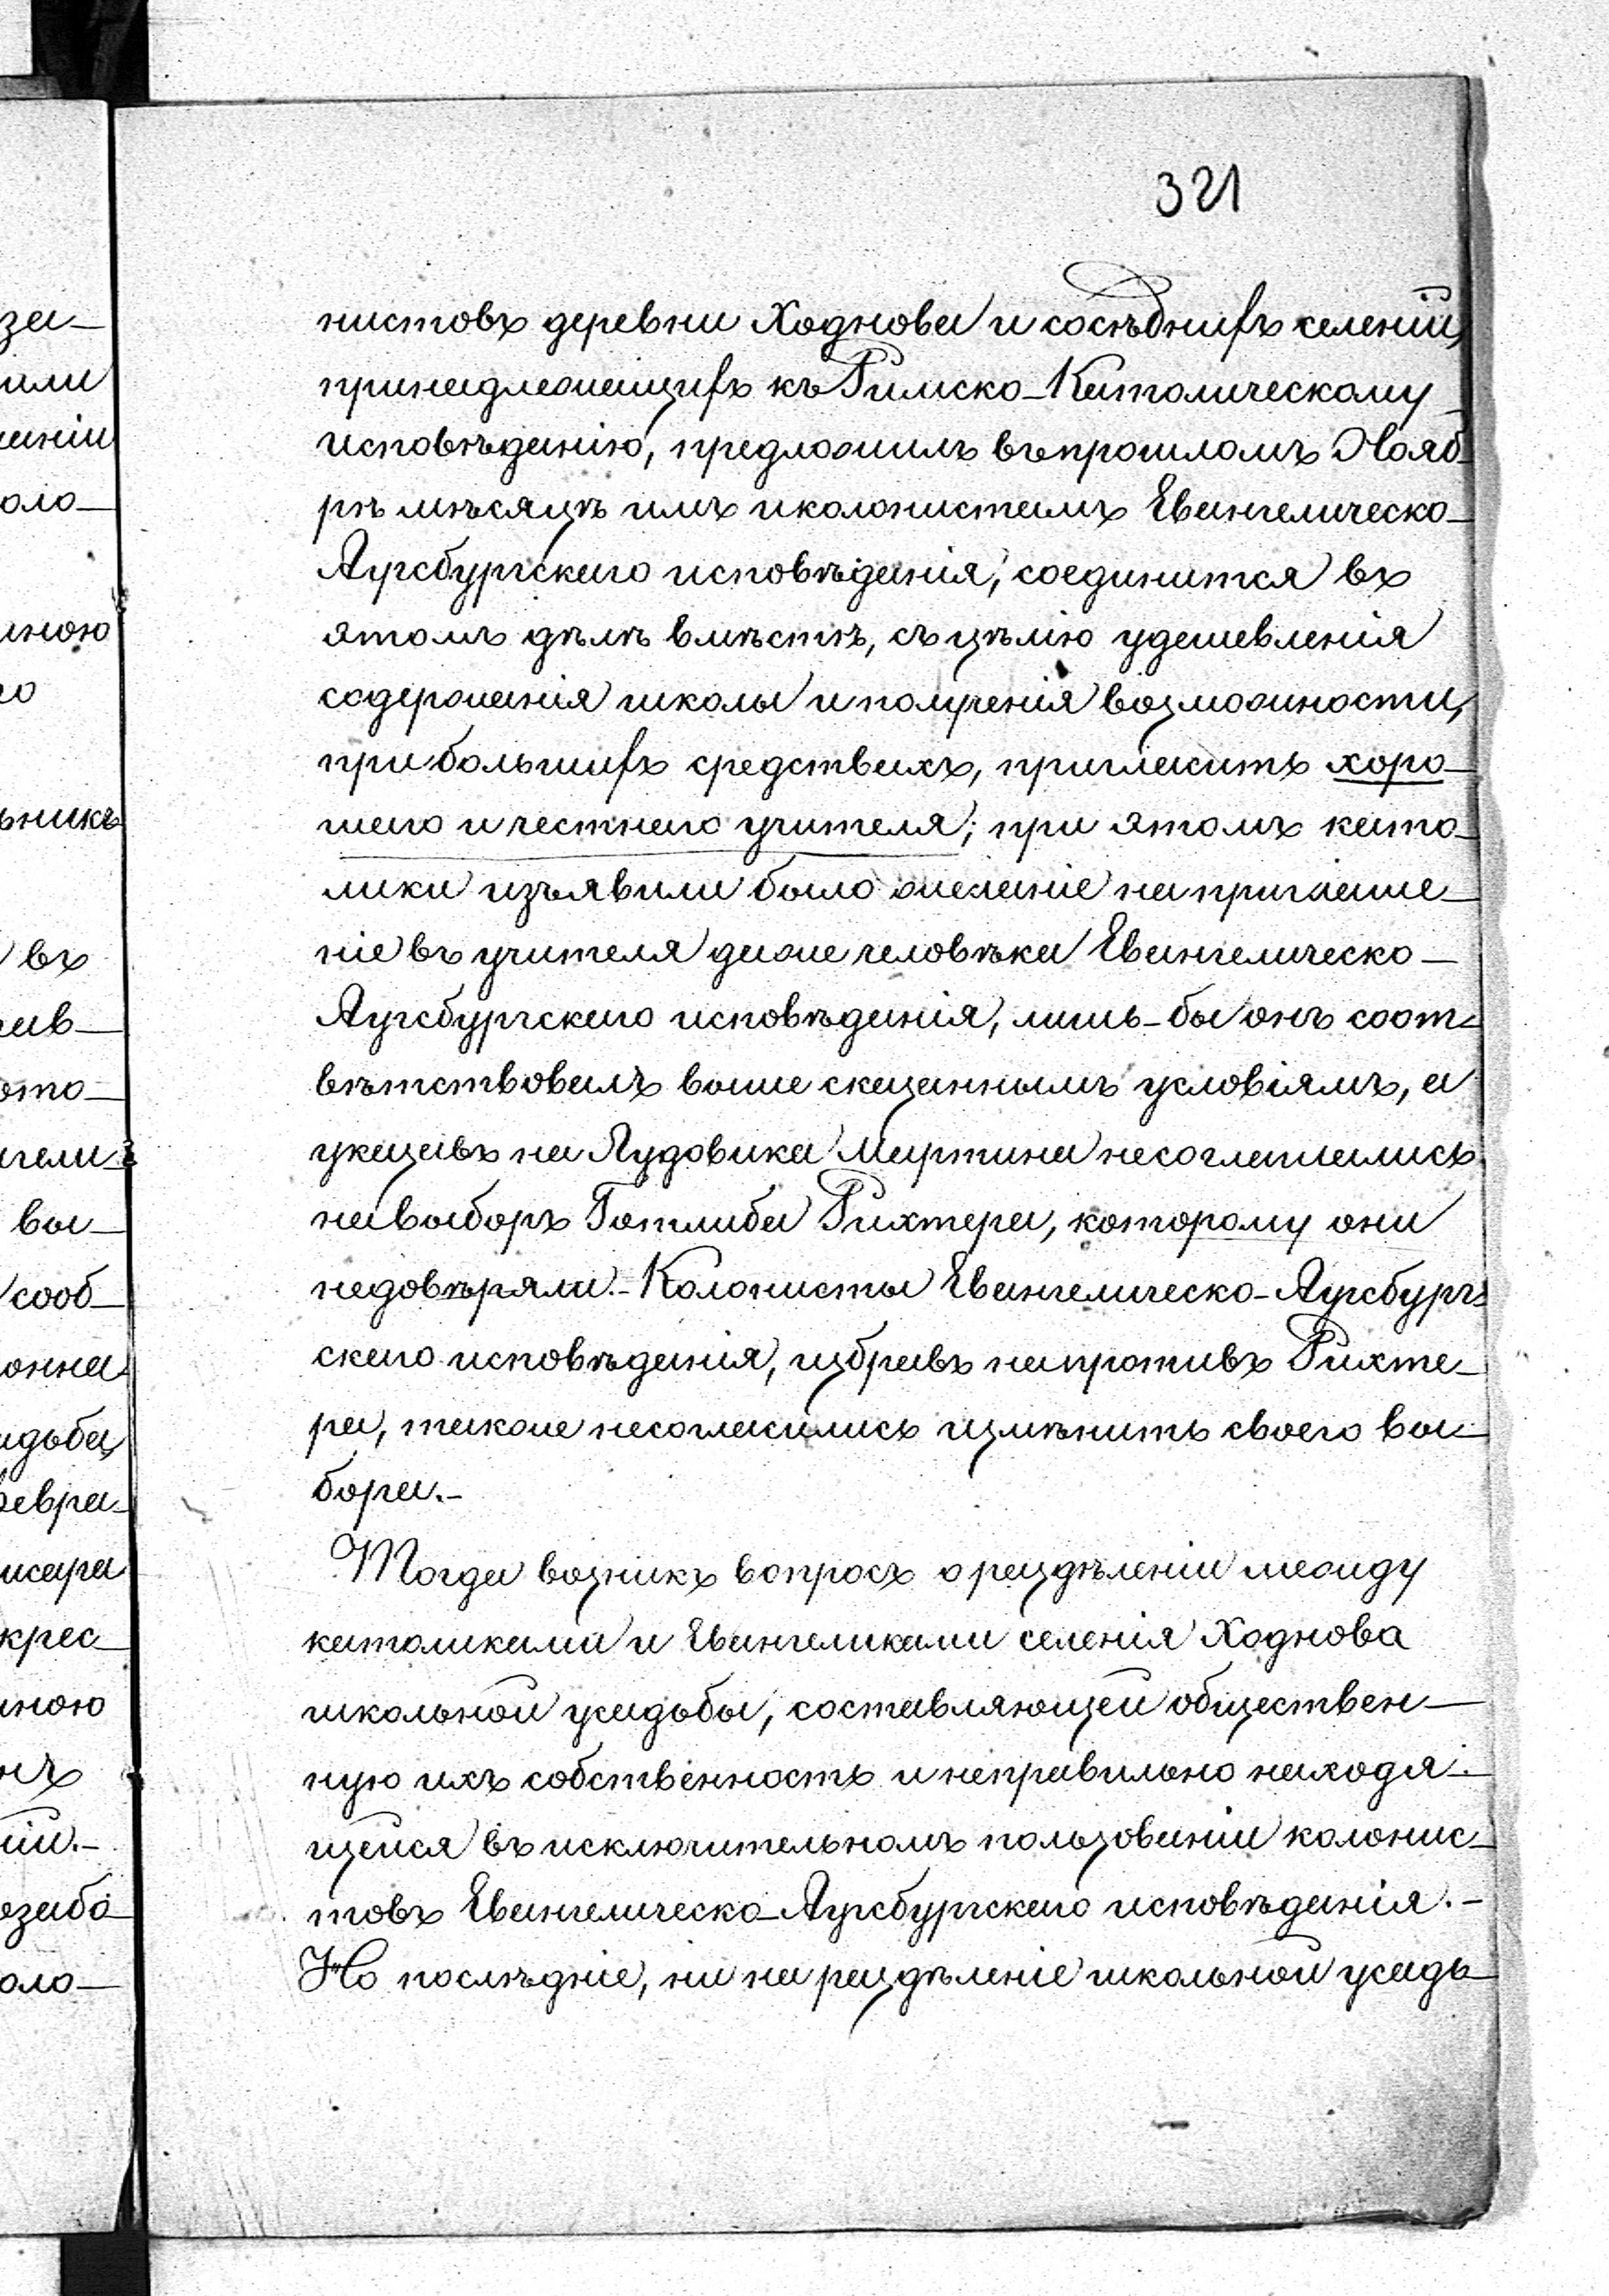 321
нистовъ деревни Ходнова и сосѣднихъ селеній,
принадлежащихъ къ Римско-Католическому
исповѣданію, предложилъ въ прошломъ Нояб-
рѣ мѣсяцѣ имъ и колонистамъ Евангелическо-
Аугсбургскаго исповѣданія, соединится въ
этомъ дѣлѣ вмѣстѣ, съ цѣлію удешевленія
содержанія школы и полученія возможности,
при большихъ средствахъ, пригласить хоро-
шаго и честнаго учителя; при этомъ като-
лики изъявили было желаніе на приглаше-
ніе въ учителя даже человѣка Евангелическо-
Аугсбургскаго исповѣданія, лишь-бы онъ соот-
вѣтствовалъ выше сказаннымъ условіямъ, а
указавъ на Лудовика Мартина несоглашались
на выборъ Готлиба Рихтера, которому они
недовѣряли.- Колонисты Евангелическо-Аугсбург-
скаго исповѣданія, избравъ напротивъ Рихте-
ра, также несогласились измѣнить своего вы-
бора.-
Тогда возникъ вопросъ о раздѣленіи между
католиками и Евангеликами селенія Ходнова
школьной усадьбы, составляющей обществен-
ную ихъ собственность и неправильно находя-
щейся въ исключительномъ пользованіи колонис-
товъ Евангелическо-Аугсбургскаго исповѣданія.-
Но послѣдніе, ни на раздѣленіе школьной усадь-